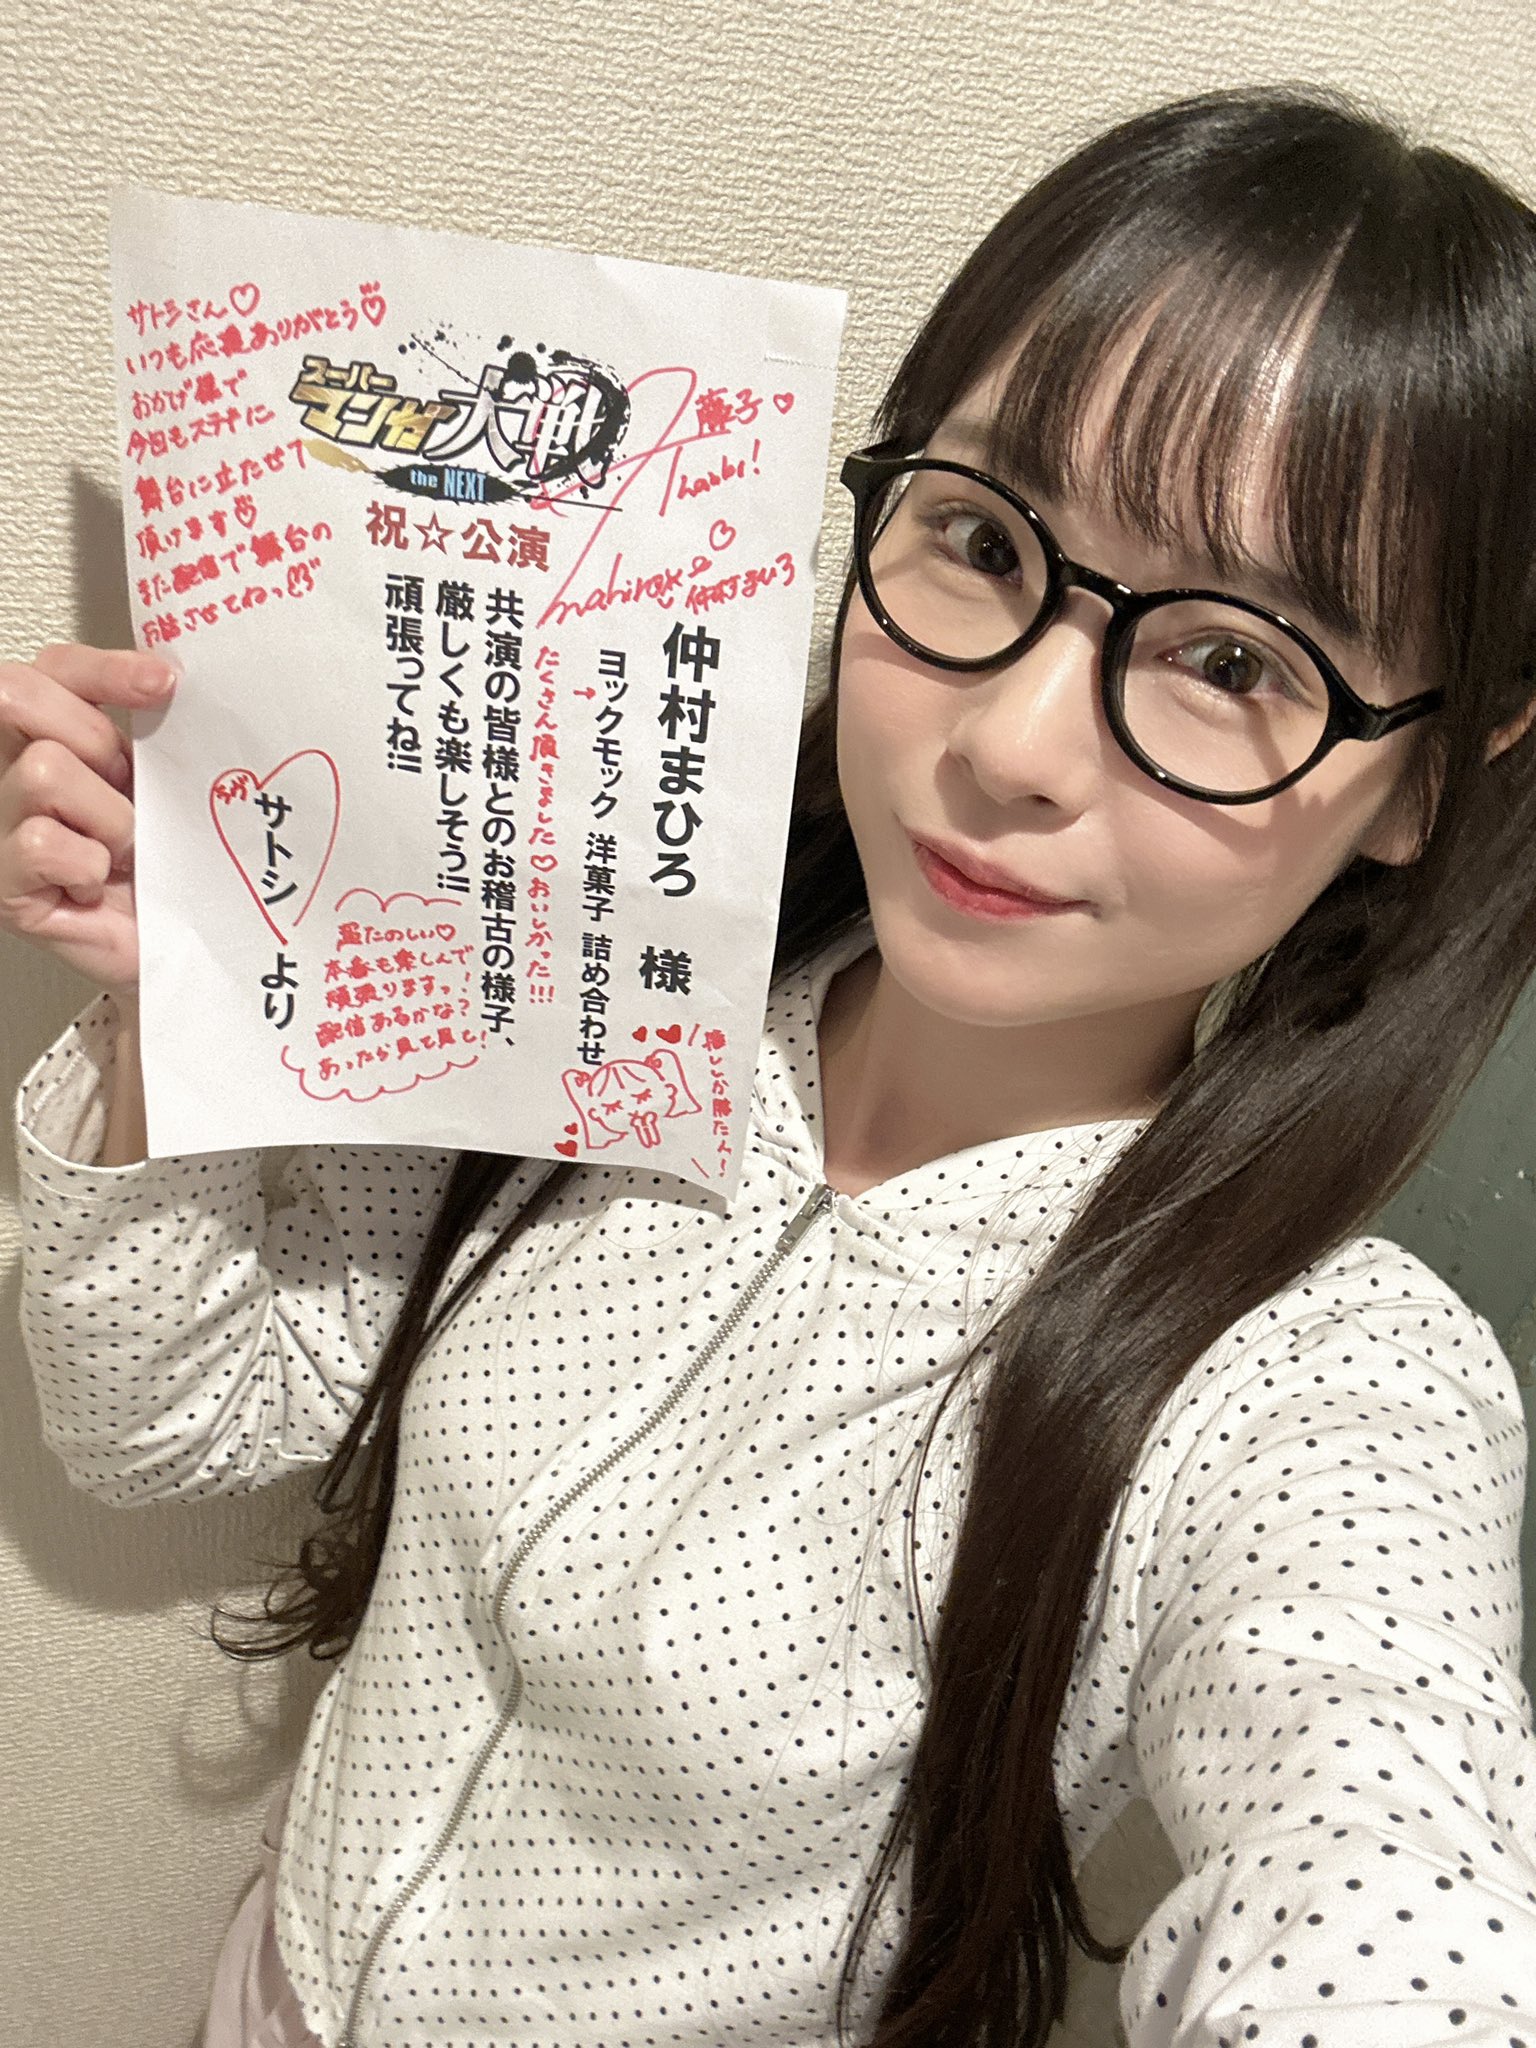 スーパー
マンガ大戦
the NEXT
祝☆公演
仲村まひろ 様
ヨックモック 洋菓子 詰め合わせ
共演の皆様とのお稽古の様子、
厳しくも楽しそう!!
頑張ってね!!
サトシ より
サトシさん♡
いつも応援ありがとう♡
おかげ様で
今日もステキに
舞台に立たせて
頂けます♡
また配信で舞台の
お話させてねっ♡
藤子♡
mahiro
仲村まひろ
→たくさん頂きました♡おいしかった!!!
ラヴ
超たのしい♡
本番も楽しんで
頑張りますっ!
配信あるかな?
あったら見て見て!